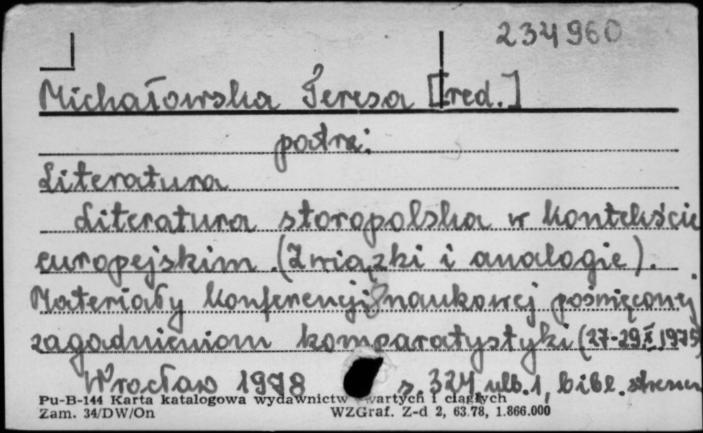 234960
Michałowska Teresa [red.]
patrz:
Literatura
Literatura staropolska w kontekście
europejskim. (Związki i analogie).
Materiały konferencji naukowej poświęconej
zagadnieniom komparatystyki (27-29 X 1975)
Wrocław 1978 s. 324 ulb. 1, bibl. streszcz
Pu-B-144 Karta katalogowa wydawnictw zwartych i ciągłych
Zam. 34/DW/On WZGraf. Z-d 2, 63.78, 1.866.000